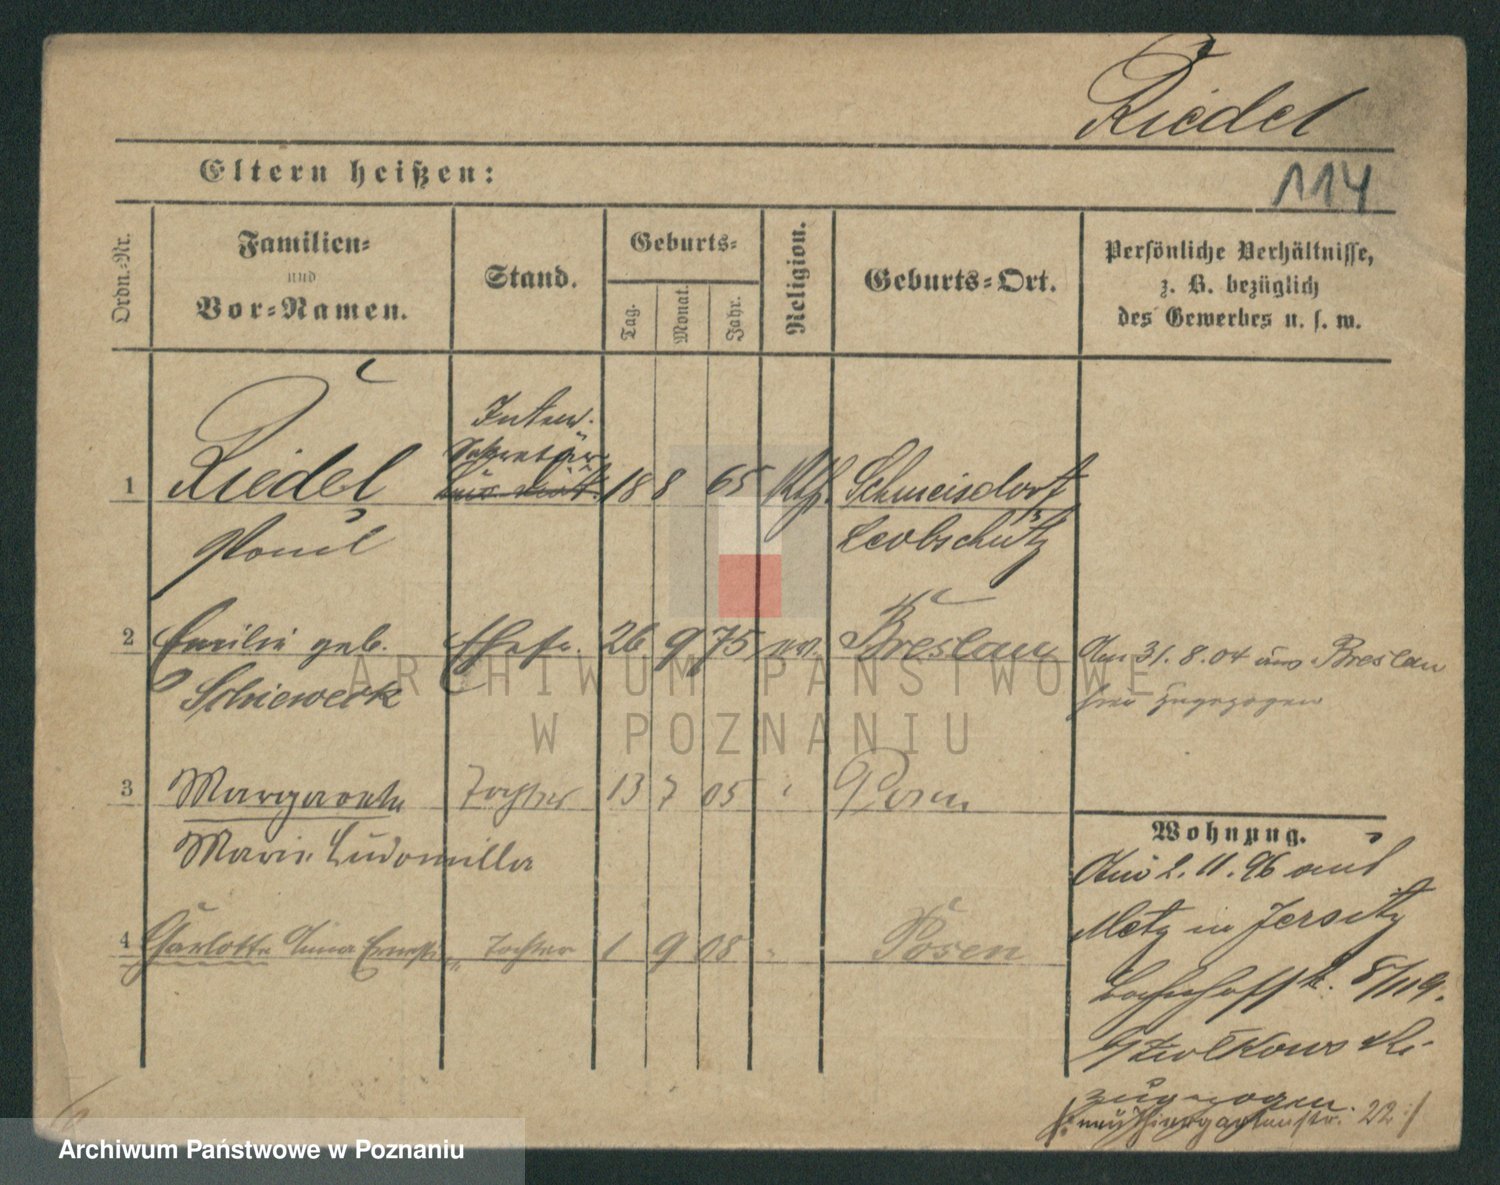 Riedel
Eltern heißen:
114
Ordn.-Nr.
Familien-
und
Vor-Namen.
Stand.
Geburts-
Tag.
Monat.
Jahr.
Religion.
Geburts-Ort.
Persönliche Verhältnisse,
z. B. bezüglich
des Gewerbes u. s. w.
1 Riedel
Paul
Inten.
Sekretär
18 8 65 Kth. Schmeisdorf
Leobschütz
2 Emilie geb.
Schiewerk
Ehefr. 26. 9 75 ev. Breslau
Am 31. 8. 04 aus Breslau
hier zugezogen
3 Margarete
Marie Ludomilla
Tochter 13 7 05 " Posen
4 Charlotte Anna
Tochter 1 9 08 " Posen
Wohnung.
Am 2. 11. 96 aus
Metz in Jersitz
Bahnhofstr. 8/119.
zugezogen.
22
ARCHIWUM PAŃSTWOWE
W POZNANIU
Archiwum Państwowe w Poznaniu